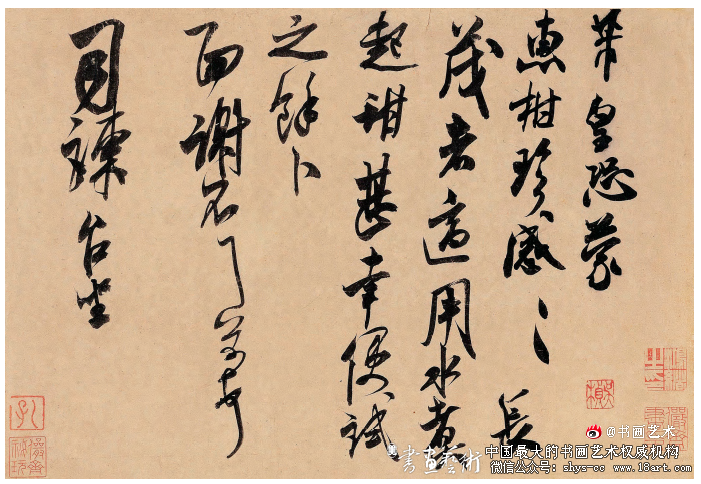 芾皇恐蒙
惠柑珍感〻長
茂者適用水煮
起甜甚幸便試
之餘卜
面謝不一芾頓首
司諫台坐
@书画艺术
書畫藝術
中国最大的书画艺术权威机构
微信公众号: shys-cc www.18art.com